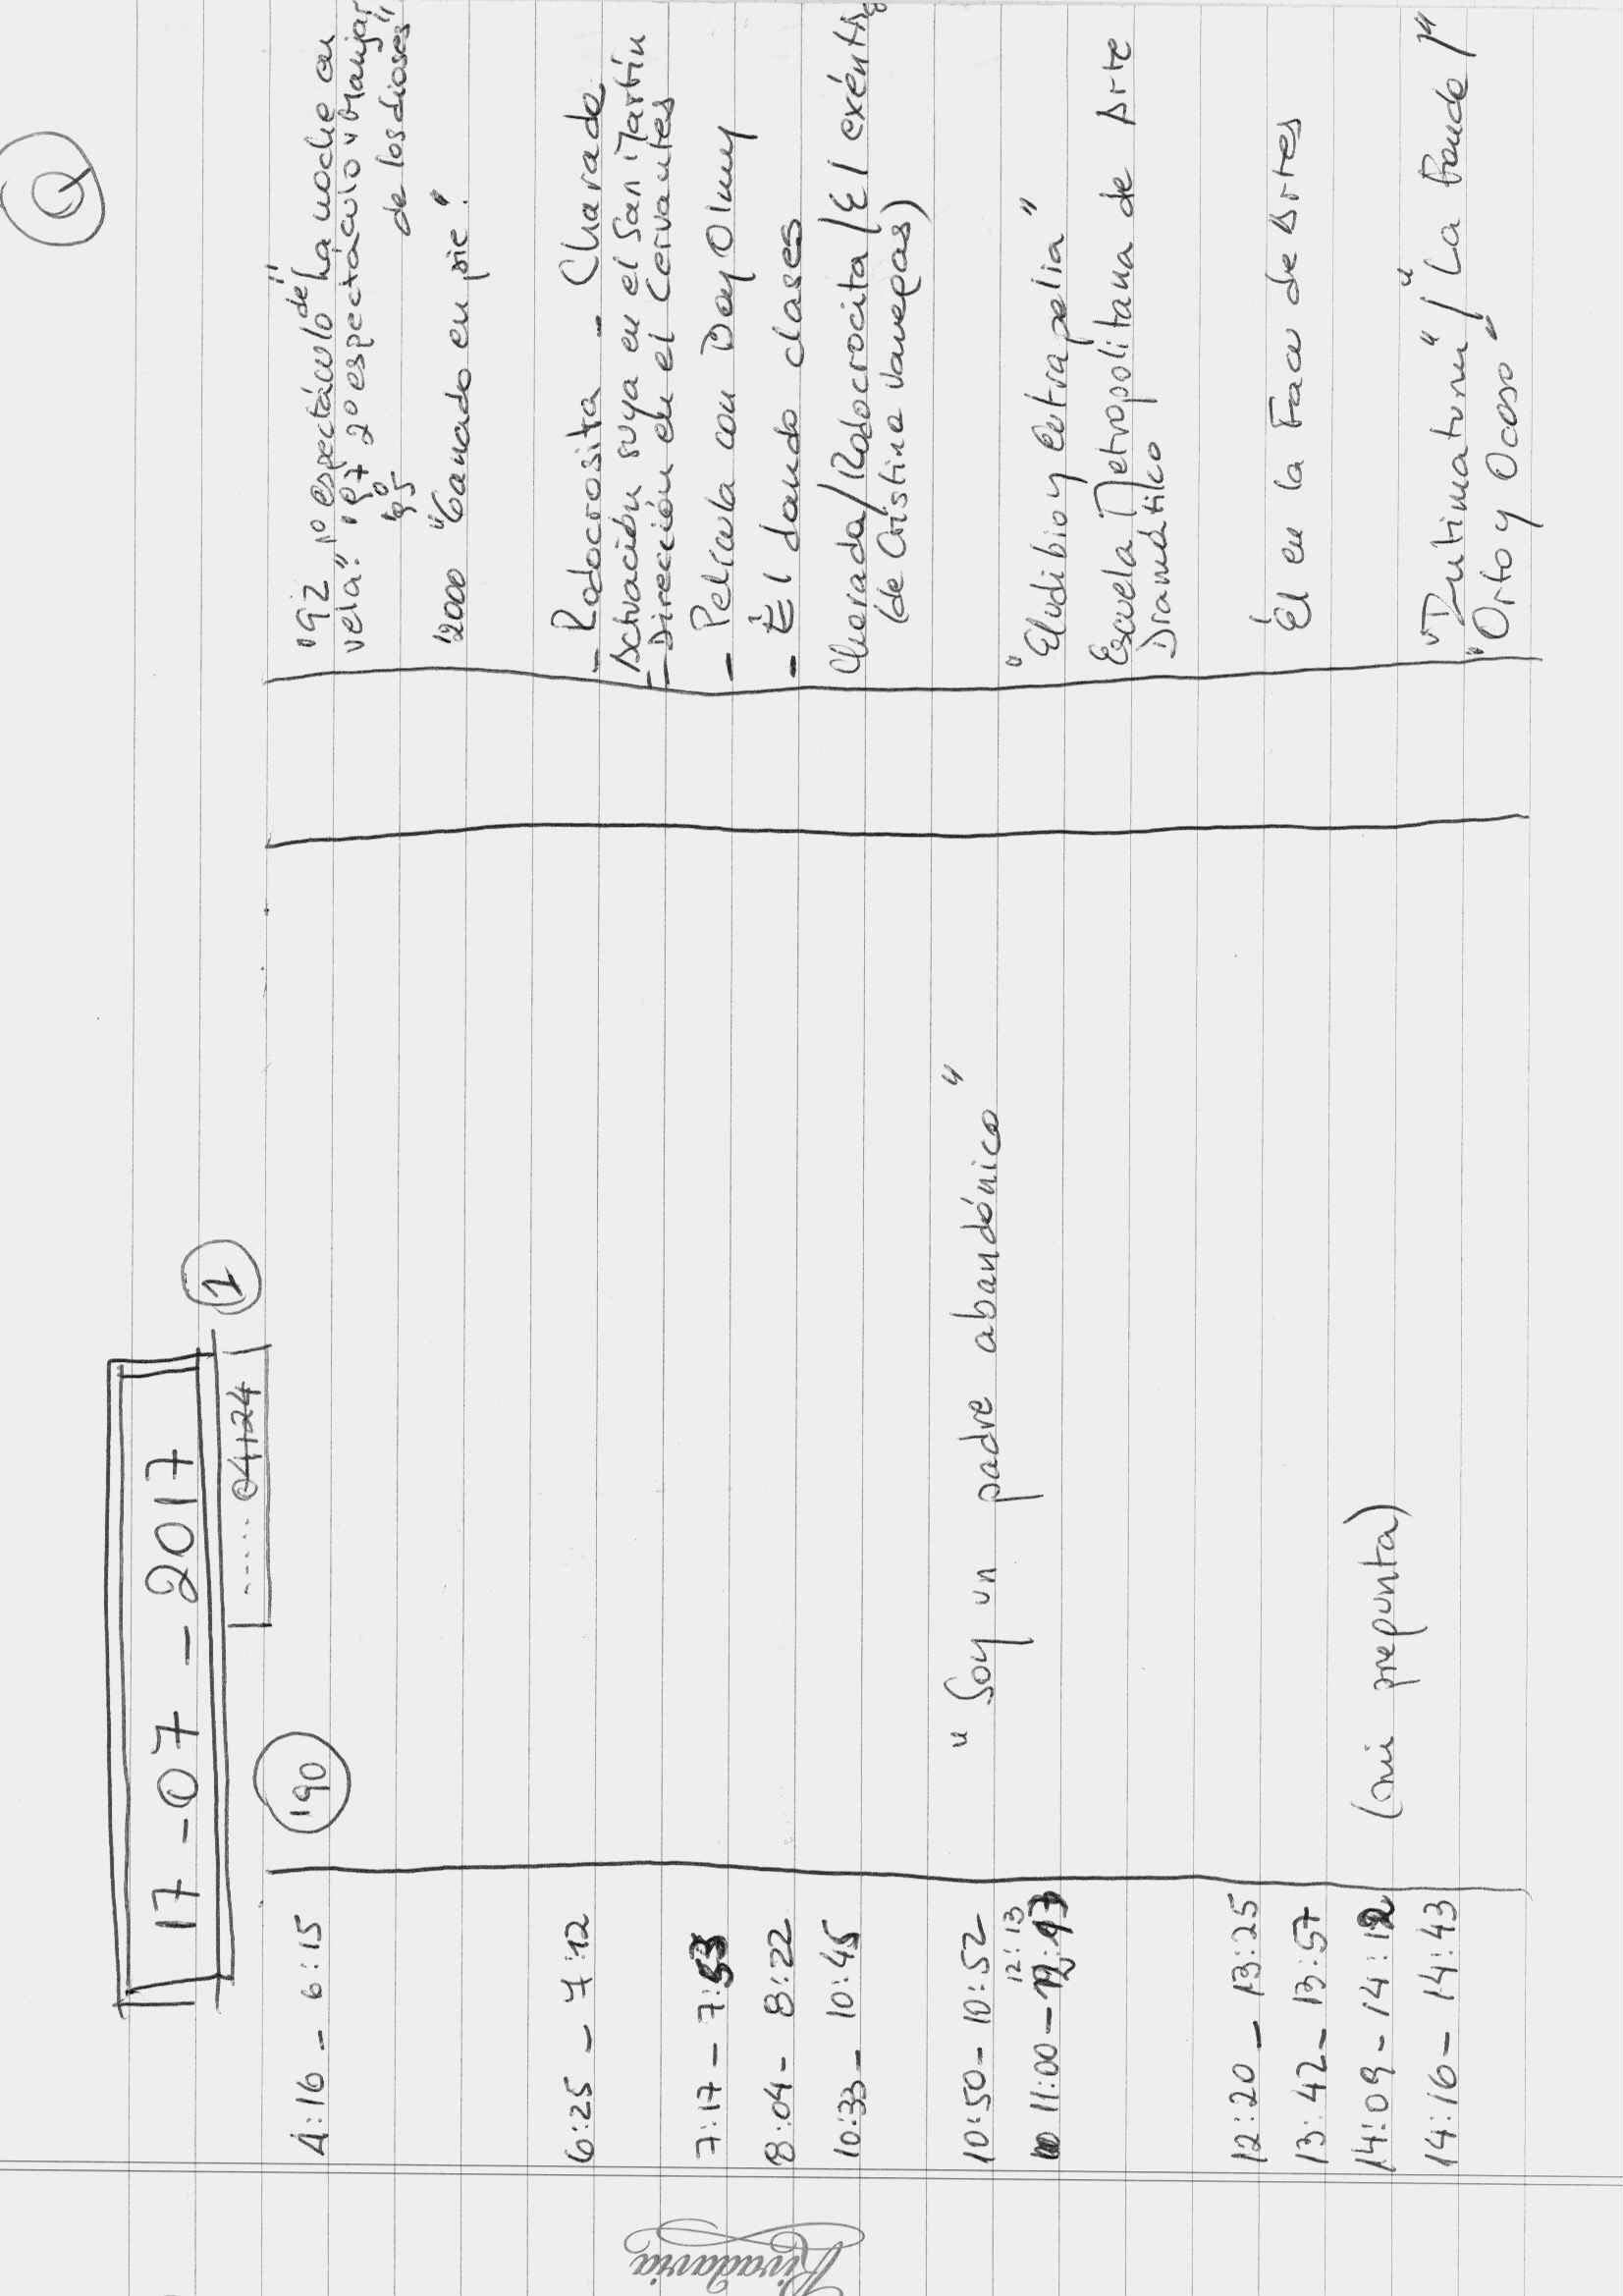 Q
17-07-2017
..... 04124 1
4:16 - 6:15 '90 '92 1º espectáculo de "La noche en
vela". '97 2º espectáculo "Manjar
'95 de los dioses"
'2000 "Ganado en pie".
6:25 - 7:12 - Rodocrosita - Charada
Actuación suya en el San Martín
- Dirección en el Cervantes
7:17 - 7:53 - Película con Boy Olmy
8:04 - 8:22 - Él dando clases
10:33 - 10:45 Charada/Rodocrocita/El exéntri
(de Cristina Vanegas)
10:50 - 10:52 "Soy un padre abandónico"
12:13
11:00 - "Eludibio y Eutrapelia"
Escuela Metropolitana de Arte
Dramático
12:20 - 13:25 Él en la Facu de Artes
13:42 - 13:57
14:09 - 14:12 (mi pregunta)
14:16 - 14:43 "Dultimatum"/"La Banda
"Orto y Ocaso"
Rivadavia